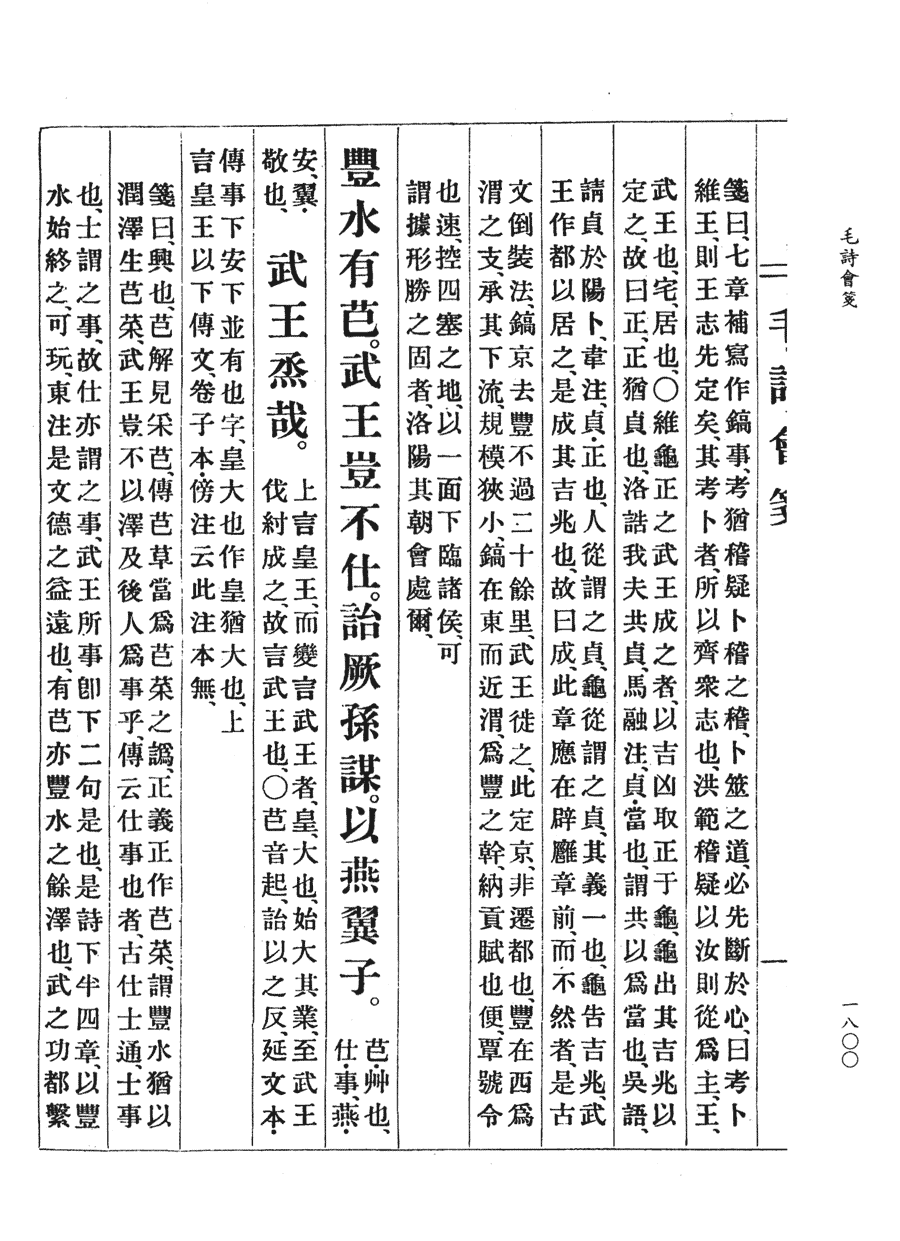 毛詩會箋
一八〇〇
毛詩會箋
箋曰、七章補寫作鎬事、考猶稽疑卜稽之稽、卜筮之道、必先斷於心、曰考卜
維王、則王志先定矣、其考卜者、所以齊衆志也、洪範稽疑以汝則從爲主、王、
武王也、宅、居也、〇維龜正之武王成之者、以吉凶取正于龜、龜出其吉兆以
定之、故曰正、正猶貞也、洛誥我夫共貞、馬融注、貞・當也、謂共以爲當也、吳語、
請貞於陽卜、韋注、貞・正也、人從謂之貞、龜從謂之貞、其義一也、龜告吉兆、武
王作都以居之、是成其吉兆也、故曰成、此章應在辟廱章前、而不然者、是古
文倒裝法、鎬京去豐不過二十餘里、武王徙之、此定京、非遷都也、豐在西爲
渭之支、承其下流、規模狹小、鎬在東而近渭、爲豐之幹、納貢賦也便、覃號令
也速、控四塞之地、以一面下臨諸侯、可
謂據形勝之固者、洛陽其朝會處爾、
豐水有芑。武王豈不仕。詒厥孫謀。以燕翼子。
芑・艸也、
仕・事、燕・
安、翼・
敬也、
武王烝哉。
上言皇王、而變言武王者、皇、大也、始大其業、至武王
伐紂成之、故言武王也、〇芑音起、詒以之反、延文本・
傳事下安下並有也字、皇大也作皇猶大也、上
言皇王以下傳文、卷子本・傍注云此注本無、
箋曰、興也、芑解見采芑、傳芑草當爲芑菜之譌、正義正作芑菜、謂豐水猶以
潤澤生芑菜、武王豈不以澤及後人爲事乎、傳云仕事也者、古仕士通、士事
也、士謂之事、故仕亦謂之事、武王所事卽下二句是也、是詩下半四章、以豐
水始終之、可玩、東注是文德之益遠也、有芑亦豐水之餘澤也、武之功都繫